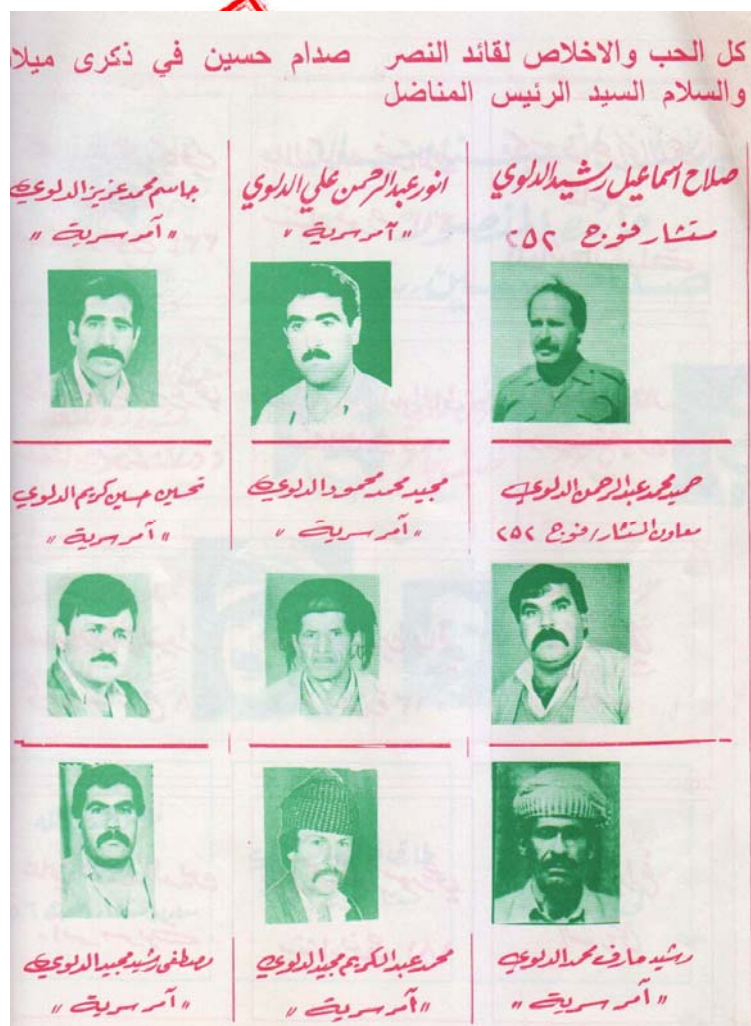 كل الحب والاخلاص لقائد النصر صدام حسين في ذكرى ميلا
والسلام السيد الرئيس المناضل
صلاح اسماعيل رشيد الدلوي
مستشار فوج ٢٥٢
انور عبدالرحمن علي الدلوي
"آمر سرية"
جاسم محمد عزيز الدلوي
"آمر سرية"
حميد محمد عبدالرحمن الدلوي
معاون المستشار / فوج ٢٥٢
مجيد محمد محمود الدلوي
"آمر سرية"
تحسين حسين كريم الدلوي
"آمر سرية"
رشيد عارف محمد الدلوي
"آمر سرية"
محمد عبدالكريم مجيد الدلوي
"آمر سرية"
مصطفى رشيد مجيد الدلوي
"آمر سرية"